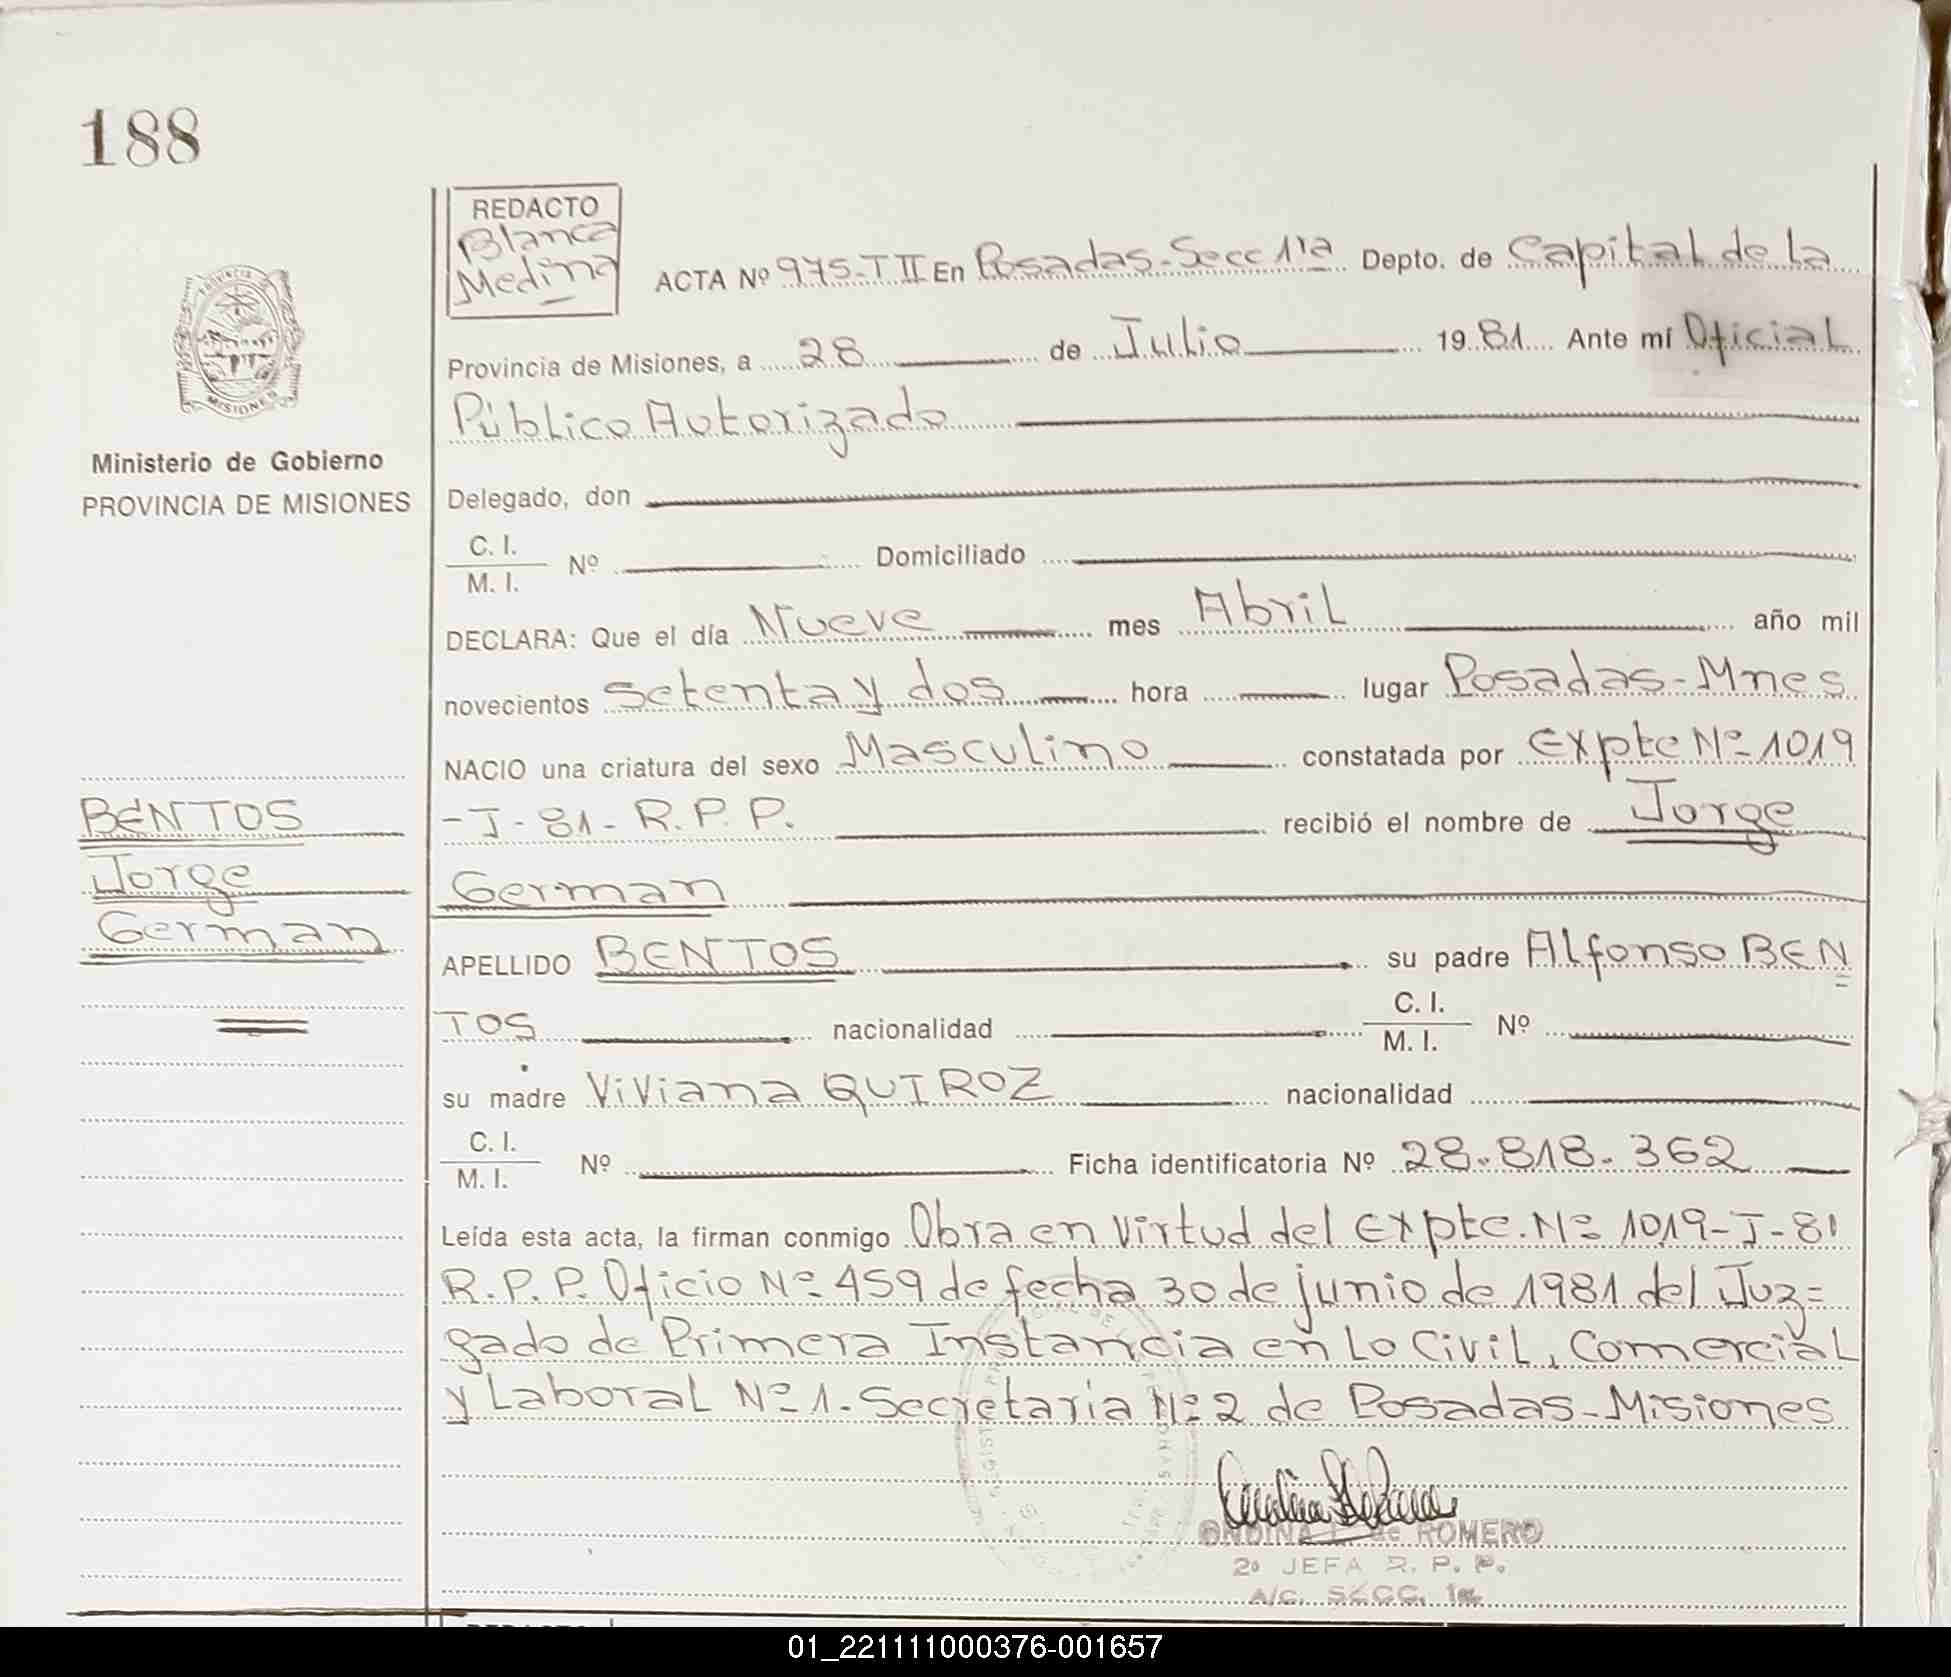 188
REDACTO
Blanca
Medina
ACTA Nº 975-T II En Posadas-Secc 1ra Depto. de Capital de la
Provincia de Misiones, a 28 de Julio 1981 Ante mí Oficial
Público Autorizado
MISIONES
Ministerio de Gobierno
PROVINCIA DE MISIONES
Delegado, don
C. I.
M. I. Nº Domiciliado
DECLARA: Que el día Nueve mes Abril año mil
novecientos setenta y dos hora lugar Posadas-Mnes
NACIO una criatura del sexo Masculino constatada por Expte Nº 1019
-J-81-R.P.P. recibió el nombre de Jorge
German
BENTOS
Jorge
German
APELLIDO BENTOS su padre Alfonso BEN
TOS nacionalidad C. I.
M. I. Nº
su madre Viviana QUIROZ nacionalidad
C. I.
M. I. Nº Ficha identificatoria Nº 28.818.362
Leída esta acta, la firman conmigo Obra en virtud del Expte. Nº 1019-J-81
R.P.P. Oficio Nº 459 de fecha 30 de junio de 1981 del Juz=
gado de Primera Instancia en Lo Civil, Comercial
y Laboral Nº 1. Secretaria Nº 2 de Posadas-Misiones
ONDINA de ROMERO
2º JEFA R. P. P.
A/C. SECC. 1a.
01_221111000376-001657